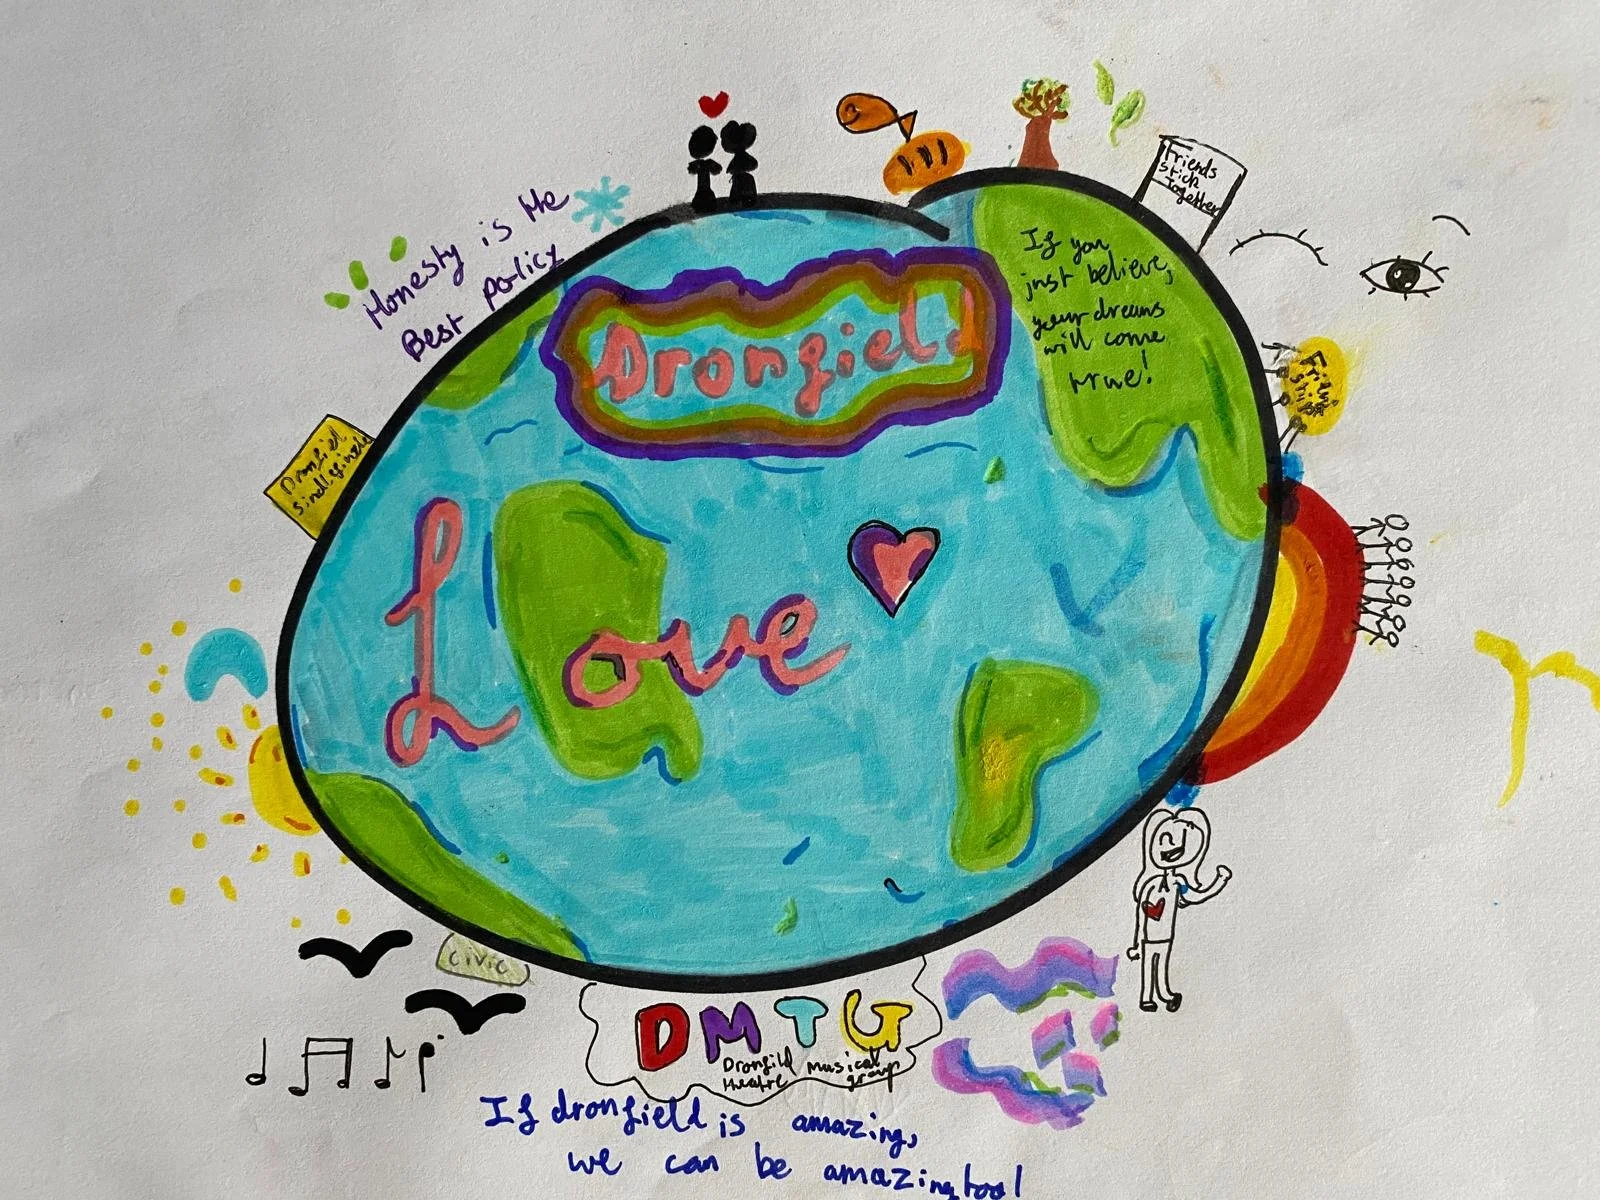 Honesty is the
Best policy
Friends
stick
Together
If you
just believe,
your dreams
will come
true!
Dronfield
Dronfield
Love
civic
DMTG
Dronfild Musical
theatre group
If dronfield is amazing,
we can be amazing too!